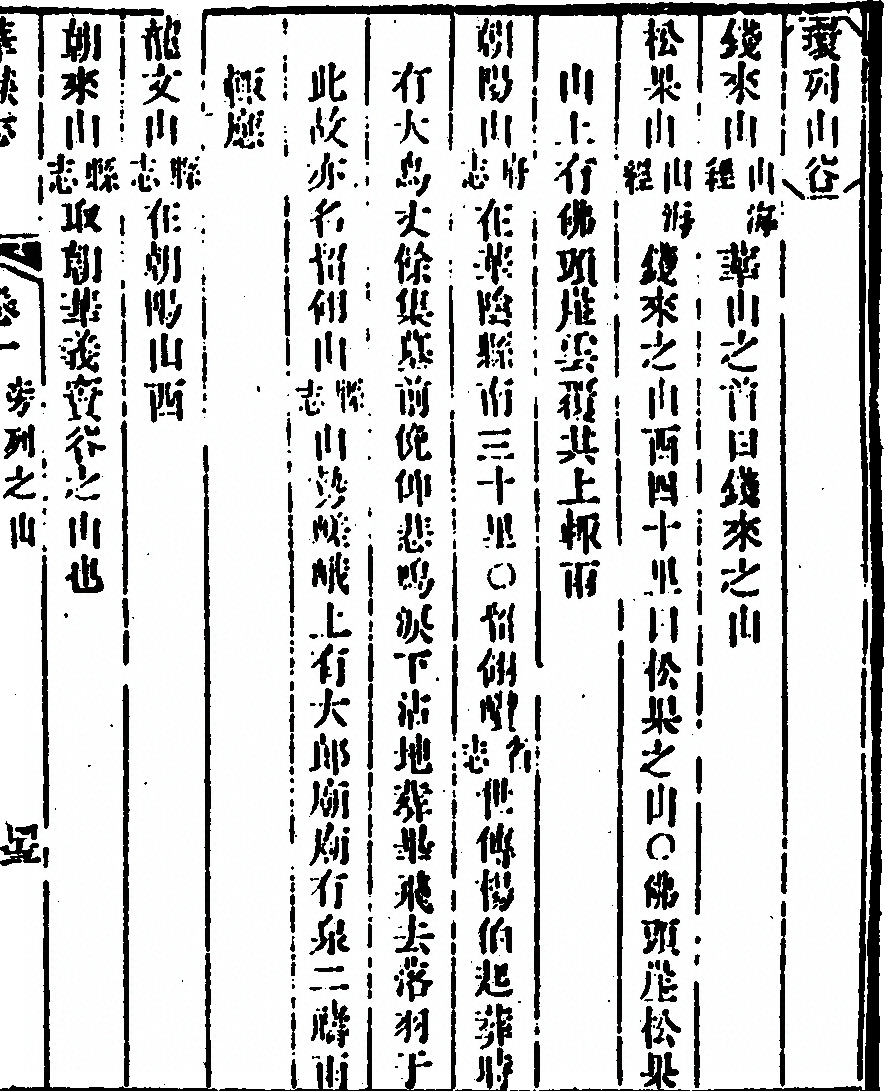 環列山谷
錢來山山海經華山之首曰錢來之山
松果山山海經錢來之山西四十里曰松果之山○佛頭崖松果
山上有佛頭崖雲覆其上輒雨
朝陽山府志在華陰縣南三十里○留仙山省志世傳楊伯起葬時
有大鳥丈餘集墓前俛仰悲鳴淚下沾地葬畢飛去落羽于
此故亦名留仙山縣志山勢嵯峨上有大郎廟廟有泉二禱雨
輒應
龍女山縣志在朝陽山西
朝來山縣志取朝華義賓谷之山也
卷一
旁列之山